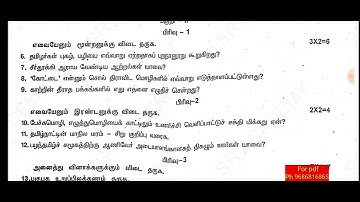 பிரிவு - 1
எவையேனும் மூன்றனுக்கு விடை தருக. 3X2=6
6. தமிழர்கள் புகழ், பழியை எவ்வாறு ஏற்றதாகப் புறநானூறு கூறுகிறது?
7. சீர்தூக்கி ஆராய வேண்டிய ஆற்றல்கள் யாவை?
8. 'கோட்டை' என்னும் சொல் திராவிட மொழிகளில் எவ்வாறு எடுத்தாளப்பட்டுள்ளது?
9. காற்றின் தீராத பக்கங்களில் எது எதனை எழுதிச் சென்றது?
பிரிவு-2
எவையேனும் இரண்டனுக்கு விடை தருக. 2X2=4
10. பேச்சுமொழி, எழுத்துமொழியைக் காட்டிலும் உணர்ச்சி வெளிப்பாட்டுச் சக்தி மிக்கது ஏன்?
11. தமிழ்நாட்டின் மாநில மரம் - சிறு குறிப்பு வரைக.
12. பழந்தமிழ்ச் சமூகத்திற்கு ஆணிவேர் அடையாளங்களாகத் திகழும் ஊர்கள் யாவை?
பிரிவு-3
அனைத்து வினாக்களுக்கும் விடை தருக.
For pdf
Ph 9686816865